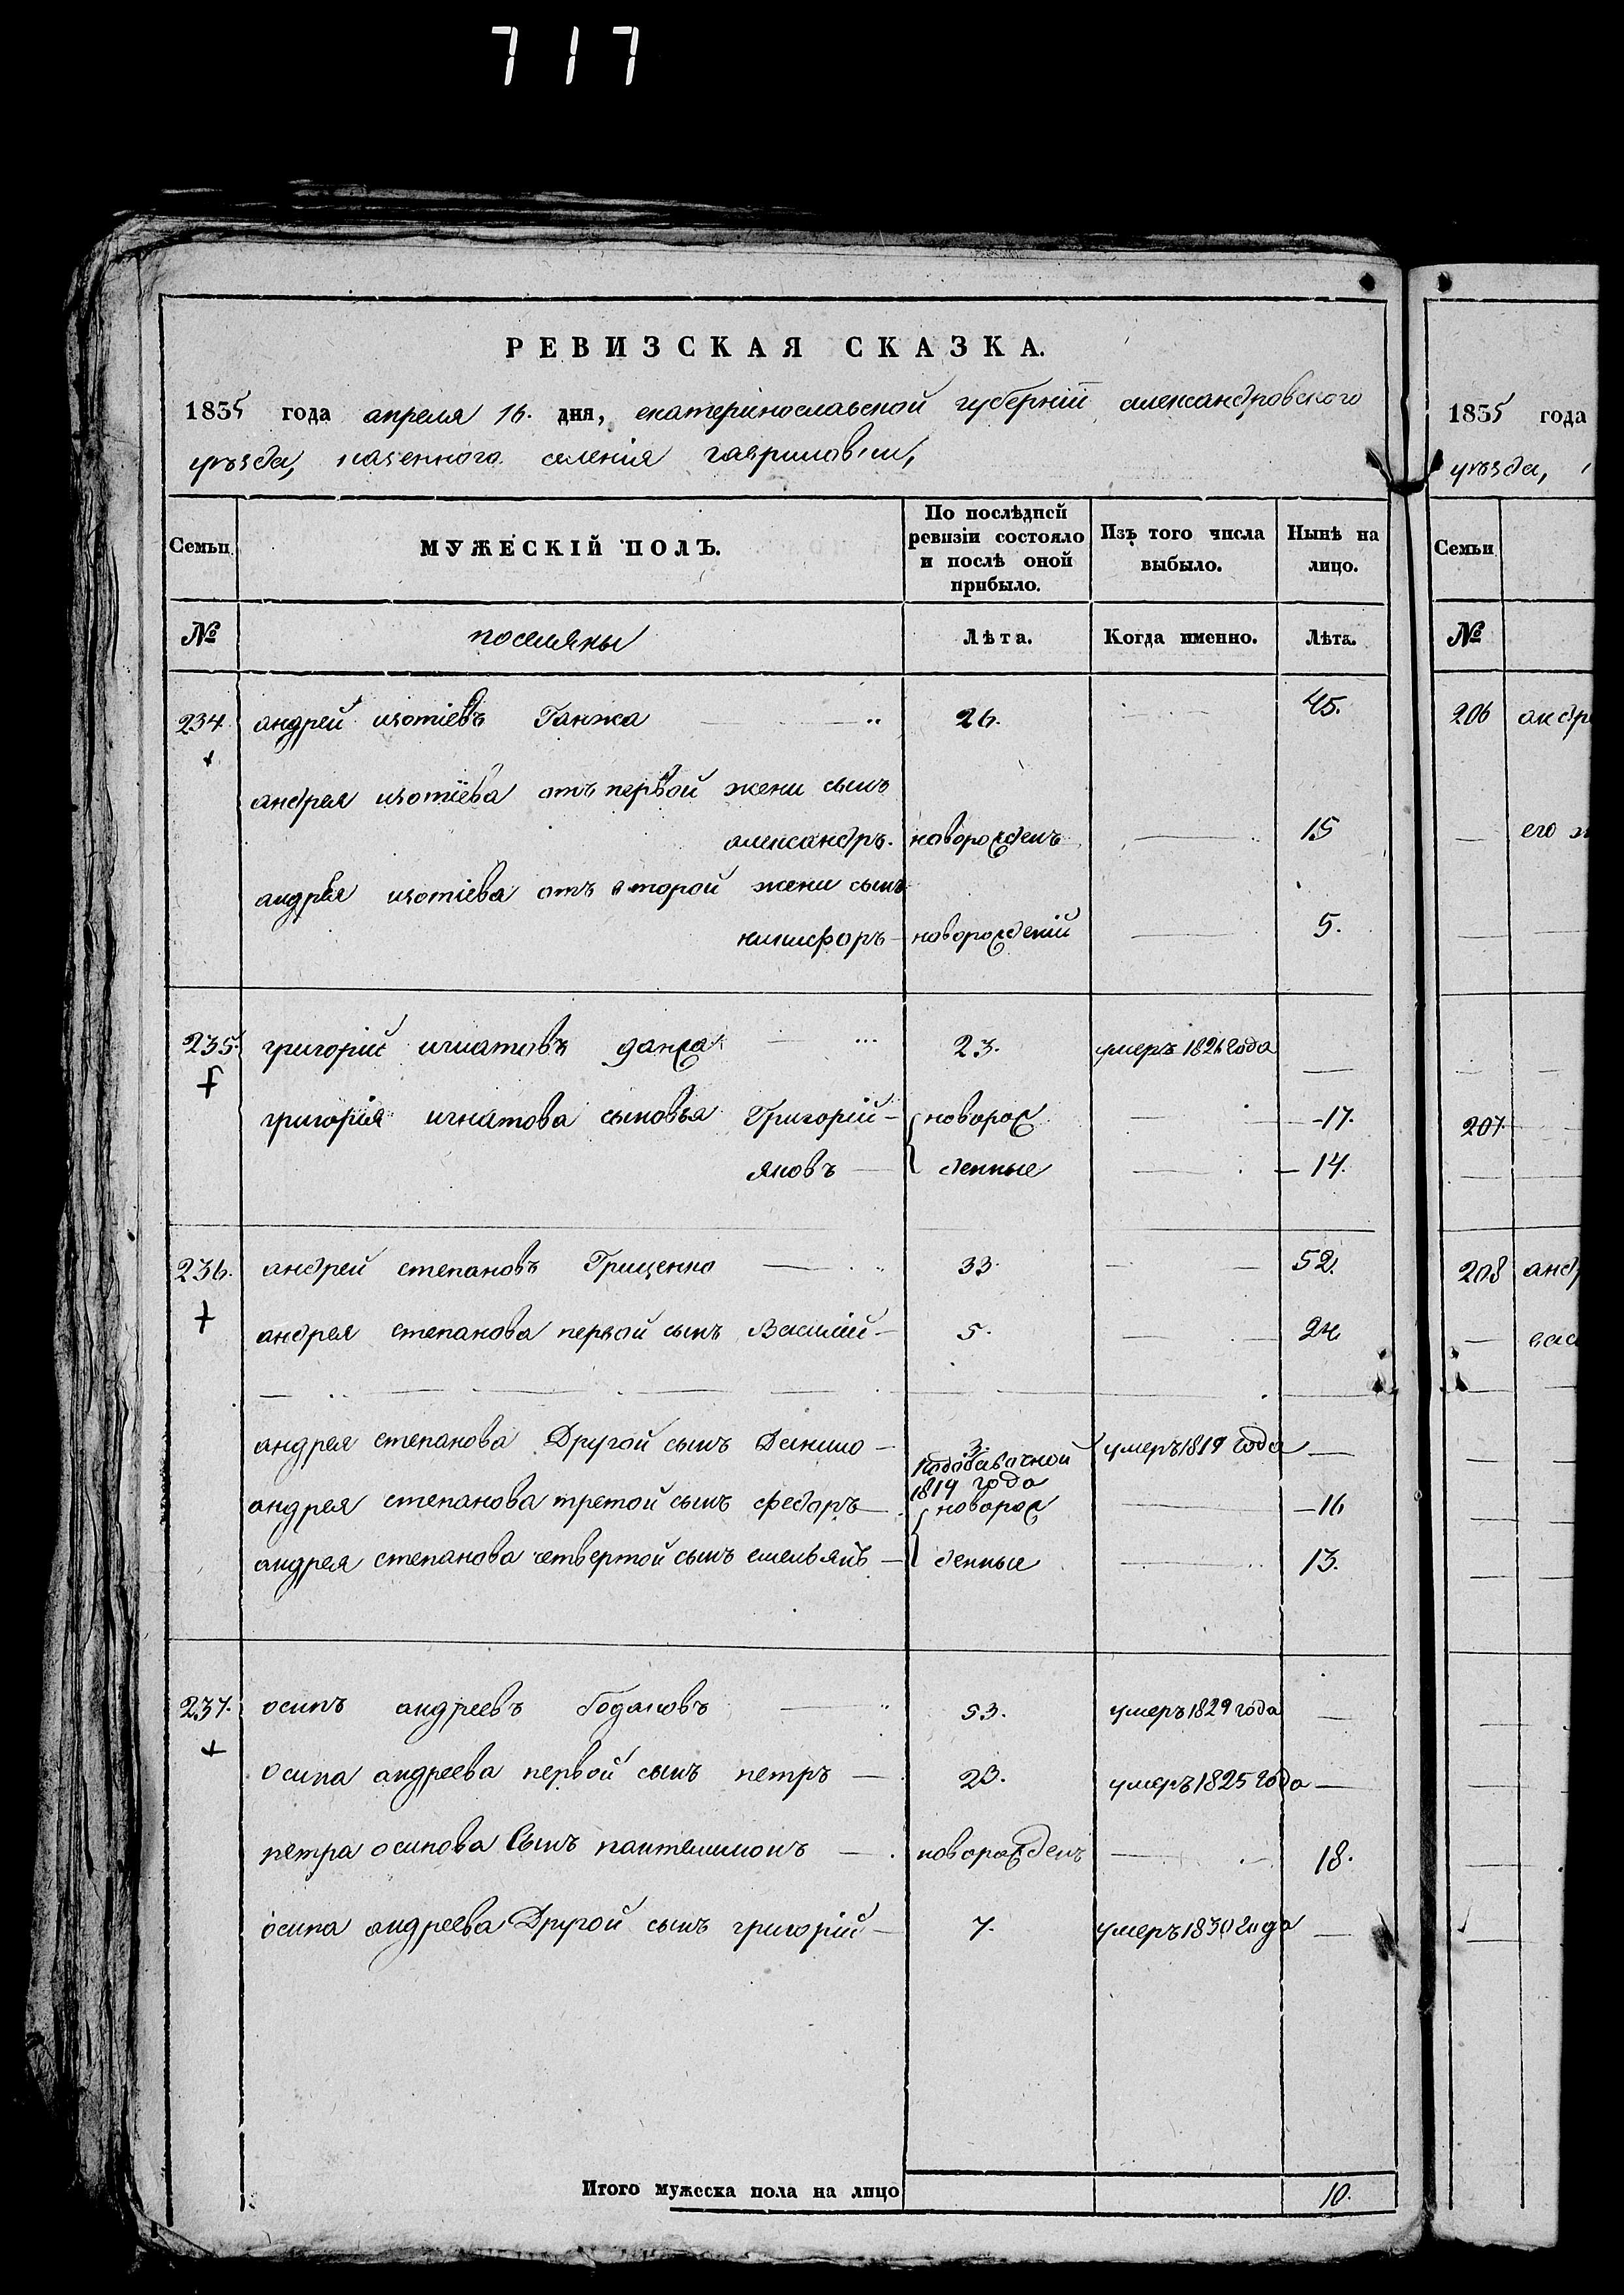 717
РЕВИЗСКАЯ СКАЗКА.
1835 года апреля 16. дня, екатеринославской губернiй александровского
уѣзда, казенного селенiя гавриловки,
Семьи
МУЖЕСКІЙ ПОЛЪ.
По послѣдней ревизіи состояло и послѣ оной прибыло.
Изъ того числа выбыло.
Нынѣ на лицо.
№ поселяны Лѣта. Когда именно. Лѣта.
234. андрей изотіевъ Ганжа 26. 45.
андрея изотіева отъ первой жени сынъ
александръ. новорожденъ 15
андрея изотіева отъ второй жени сынъ
никифоръ новорожденій 5.
235. григорій игнатовъ 23. умеръ 1826 года
григорія игнатова сыновья Григорій новорож 17.
яковъ денные 14.
236. андрей степановъ Грищенко 33. 52.
андрея степанова первой сынъ Василій 5. 24
андрея степанова Другой сынъ Данило 3. умеръ 1819 года
1819 года
андрея степанова третой сынъ федоръ новорож 16
андрея степанова четвертой сынъ емельянъ денные 13.
237. осипъ андреевъ 53. умеръ 1829 года
осипа андреева первой сынъ петръ 23. умеръ 1825 года
петра осипова Сынъ пантелимонъ новорожденъ 18.
осипа андреева Другой сынъ григорій 7. умеръ 1830 года
Итого мужеска пола на лицо 10.
1835 года
уѣзда,
Семьи
№
206 андре
его
207
208 анд
васи